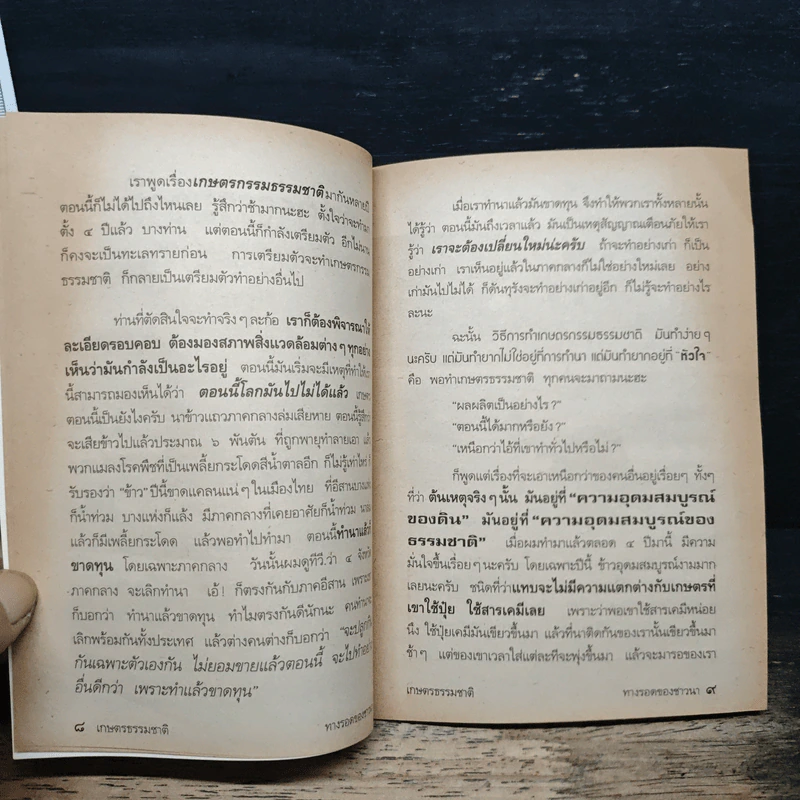 เราพูดเรื่องเกษตรกรรมธรรมชาติมากันหลายปี
ตอนนี้ก็ไม่ได้ไปถึงไหนเลย รู้สึกว่าช้ามากนะฮะ ตั้งใจว่าจะทำมา
ตั้ง ๔ ปีแล้ว บางท่าน แต่ตอนนี้ก็กำลังเตรียมตัว อีกไม่นาน
ก็คงจะเป็นทะเลทรายก่อน การเตรียมตัวจะทำเกษตรกรรม
ธรรมชาติ ก็กลายเป็นเตรียมตัวทำอย่างอื่นไป
ท่านที่ตัดสินใจจะทำจริงๆ ละก้อ เราก็ต้องพิจารณาให้
ละเอียดรอบคอบ ต้องมองสภาพสิ่งแวดล้อมต่างๆ ทุกอย่าง
เห็นว่ามันกำลังเป็นอะไรอยู่ ตอนนี้มันเริ่มจะมีเหตุที่ทำให้
นี้สามารถมองเห็นได้ว่า ตอนนี้โลกมันไปไม่ได้แล้ว
ตอนนี้เป็นยังไงครับ นาข้าวแถวภาคกลางล่มเสียหาย ตอนนี้รู้สึก
จะเสียข้าวไปแล้วประมาณ ๖ พันตัน ที่ถูกพายุทำลายเอา
พวกแมลงโรคพืชที่เป็นเพลี้ยกระโดดสีน้ำตาลอีก ก็ไม่รู้เท่าไหร่
รับรองว่า "ข้าว" ปีนี้ขาดแคลนแน่ๆ ในเมืองไทย ที่อีสานบาง
ก็น้ำท่วม บางแห่งก็แล้ง มีภาคกลางที่เคยอาศัยก็น้ำท่วม
แล้วก็มีเพลี้ยกระโดด แล้วพอทำไปทำมา ตอนนี้ทำนาแล้ว
ขาดทุน โดยเฉพาะภาคกลาง วันนั้นผมดูทีวี.ว่า ๔ จังหวัด
ภาคกลาง จะเลิกทำนา เอ้! ก็ตรงกันกับภาคอีสาน เพราะ
ก็บอกว่า ทำนาแล้วขาดทุน ทำไมตรงกันดีนักนะ คนทำนา
เลิกพร้อมกันทั้งประเทศ แล้วต่างคนต่างก็บอกว่า "จะปลูกกิน
กันเฉพาะตัวเองกัน ไม่ยอมขายแล้วตอนนี้ จะไปทำอย่าง
อื่นดีกว่า เพราะทำแล้วขาดทุน"
๘ เกษตรธรรมชาติ
ทางรอดของชาวนา
เมื่อเราทำนาแล้วมันขาดทุน จึงทำให้พวกเราทั้งหลายนั้น
ได้รู้ว่า ตอนนี้มันถึงเวลาแล้ว มันเป็นเหตุสัญญาณเตือนภัยให้เรา
รู้ว่า เราจะต้องเปลี่ยนใหม่น่ะครับ ถ้าจะทำอย่างเก่า ก็เป็น
อย่างเก่า เราเห็นอยู่แล้วในภาคกลางก็ไม่ใช่อย่างใหม่เลย อย่าง
เก่ามันไปไม่ได้ ก็ดันทุรังจะทำอย่างเก่าอยู่อีก ก็ไม่รู้จะทำอย่างไร
ละนะ
ฉะนั้น วิธีการทำเกษตรกรรมธรรมชาติ มันทำง่ายๆ
นะครับ แต่มันทำยากไม่ใช่อยู่ที่การทำนา แต่มันทำยากอยู่ที่ "หัวใจ"
คือ พอทำเกษตรธรรมชาติ ทุกคนจะมาถามนะฮะ
"ผลผลิตเป็นอย่างไร?"
"ตอนนี้ได้มากหรือยัง?"
"เหนือกว่าไอ้ที่เขาทำทั่วไปหรือไม่?"
ก็พูดแต่เรื่องที่จะเอาเหนือกว่าของคนอื่นอยู่เรื่อยๆ ทั้งๆ
ที่ว่า ต้นเหตุจริงๆ นั้น มันอยู่ที่ "ความอุดมสมบูรณ์
ของดิน" มันอยู่ที่ "ความอุดมสมบูรณ์ของ
ธรรมชาติ" เมื่อผมทำมาแล้วตลอด ๔ ปีมานี้ มีความ
มั่นใจขึ้นเรื่อยๆ นะครับ โดยเฉพาะปีนี้ ข้าวอุดมสมบูรณ์งามมาก
เลยนะครับ ชนิดที่ว่าแทบจะไม่มีความแตกต่างกับเกษตรที่
เขาใช้ปุ๋ย ใช้สารเคมีเลย เพราะว่าพอเขาใช้สารเคมีหน่อย
นึง ใช้ปุ๋ยเคมีมันเขียวขึ้นมา แล้วที่นาติดกันของเรานั้นเขียวขึ้นมา
ช้าๆ แต่ของเขาเวลาใส่แต่ละทีจะพุ่งขึ้นมา แล้วจะมารอของเรา
เกษตรธรรมชาติ
ทางรอดของชาวนา ๙